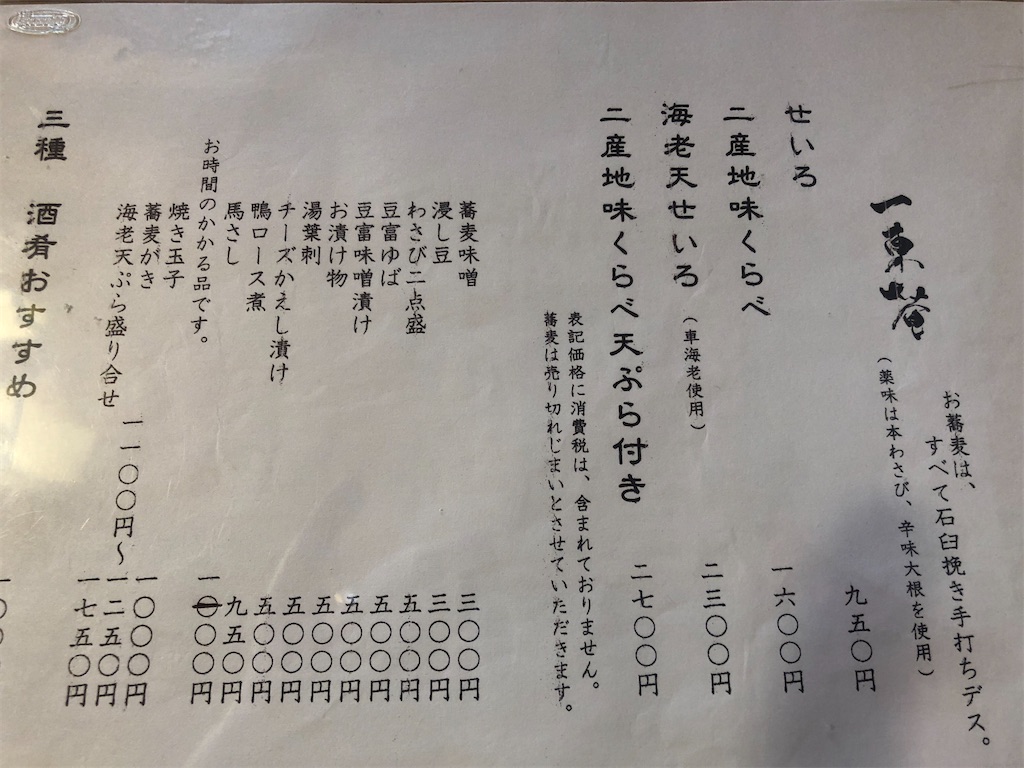 お蕎麦は、
すべて石臼挽き手打ちデス。
一東菴
(薬味は本わさび、辛味大根を使用)
せいろ 九五〇円
二産地味くらべ 一六〇〇円
海老天せいろ (車海老使用) 二三〇〇円
二産地味くらべ天ぷら付き 二七〇〇円
表記価格に消費税は、含まれておりません。
蕎麦は売り切れじまいとさせていただきます。
蕎麦味噌 三〇〇円
浸し豆 三〇〇円
わさび二点盛 五〇〇円
豆富ゆば 五〇〇円
豆富味噌漬け 五〇〇円
お漬け物 五〇〇円
湯葉刺 五〇〇円
チーズかえし漬け 五〇〇円
鴨ロース煮 九五〇円
馬さし 一〇〇〇円
お時間のかかる品です。
焼き玉子 一〇〇〇円
蕎麦がき 一一〇〇円～一二五〇円
海老天ぷら盛り合せ 一七五〇円
三種 酒肴おすすめ